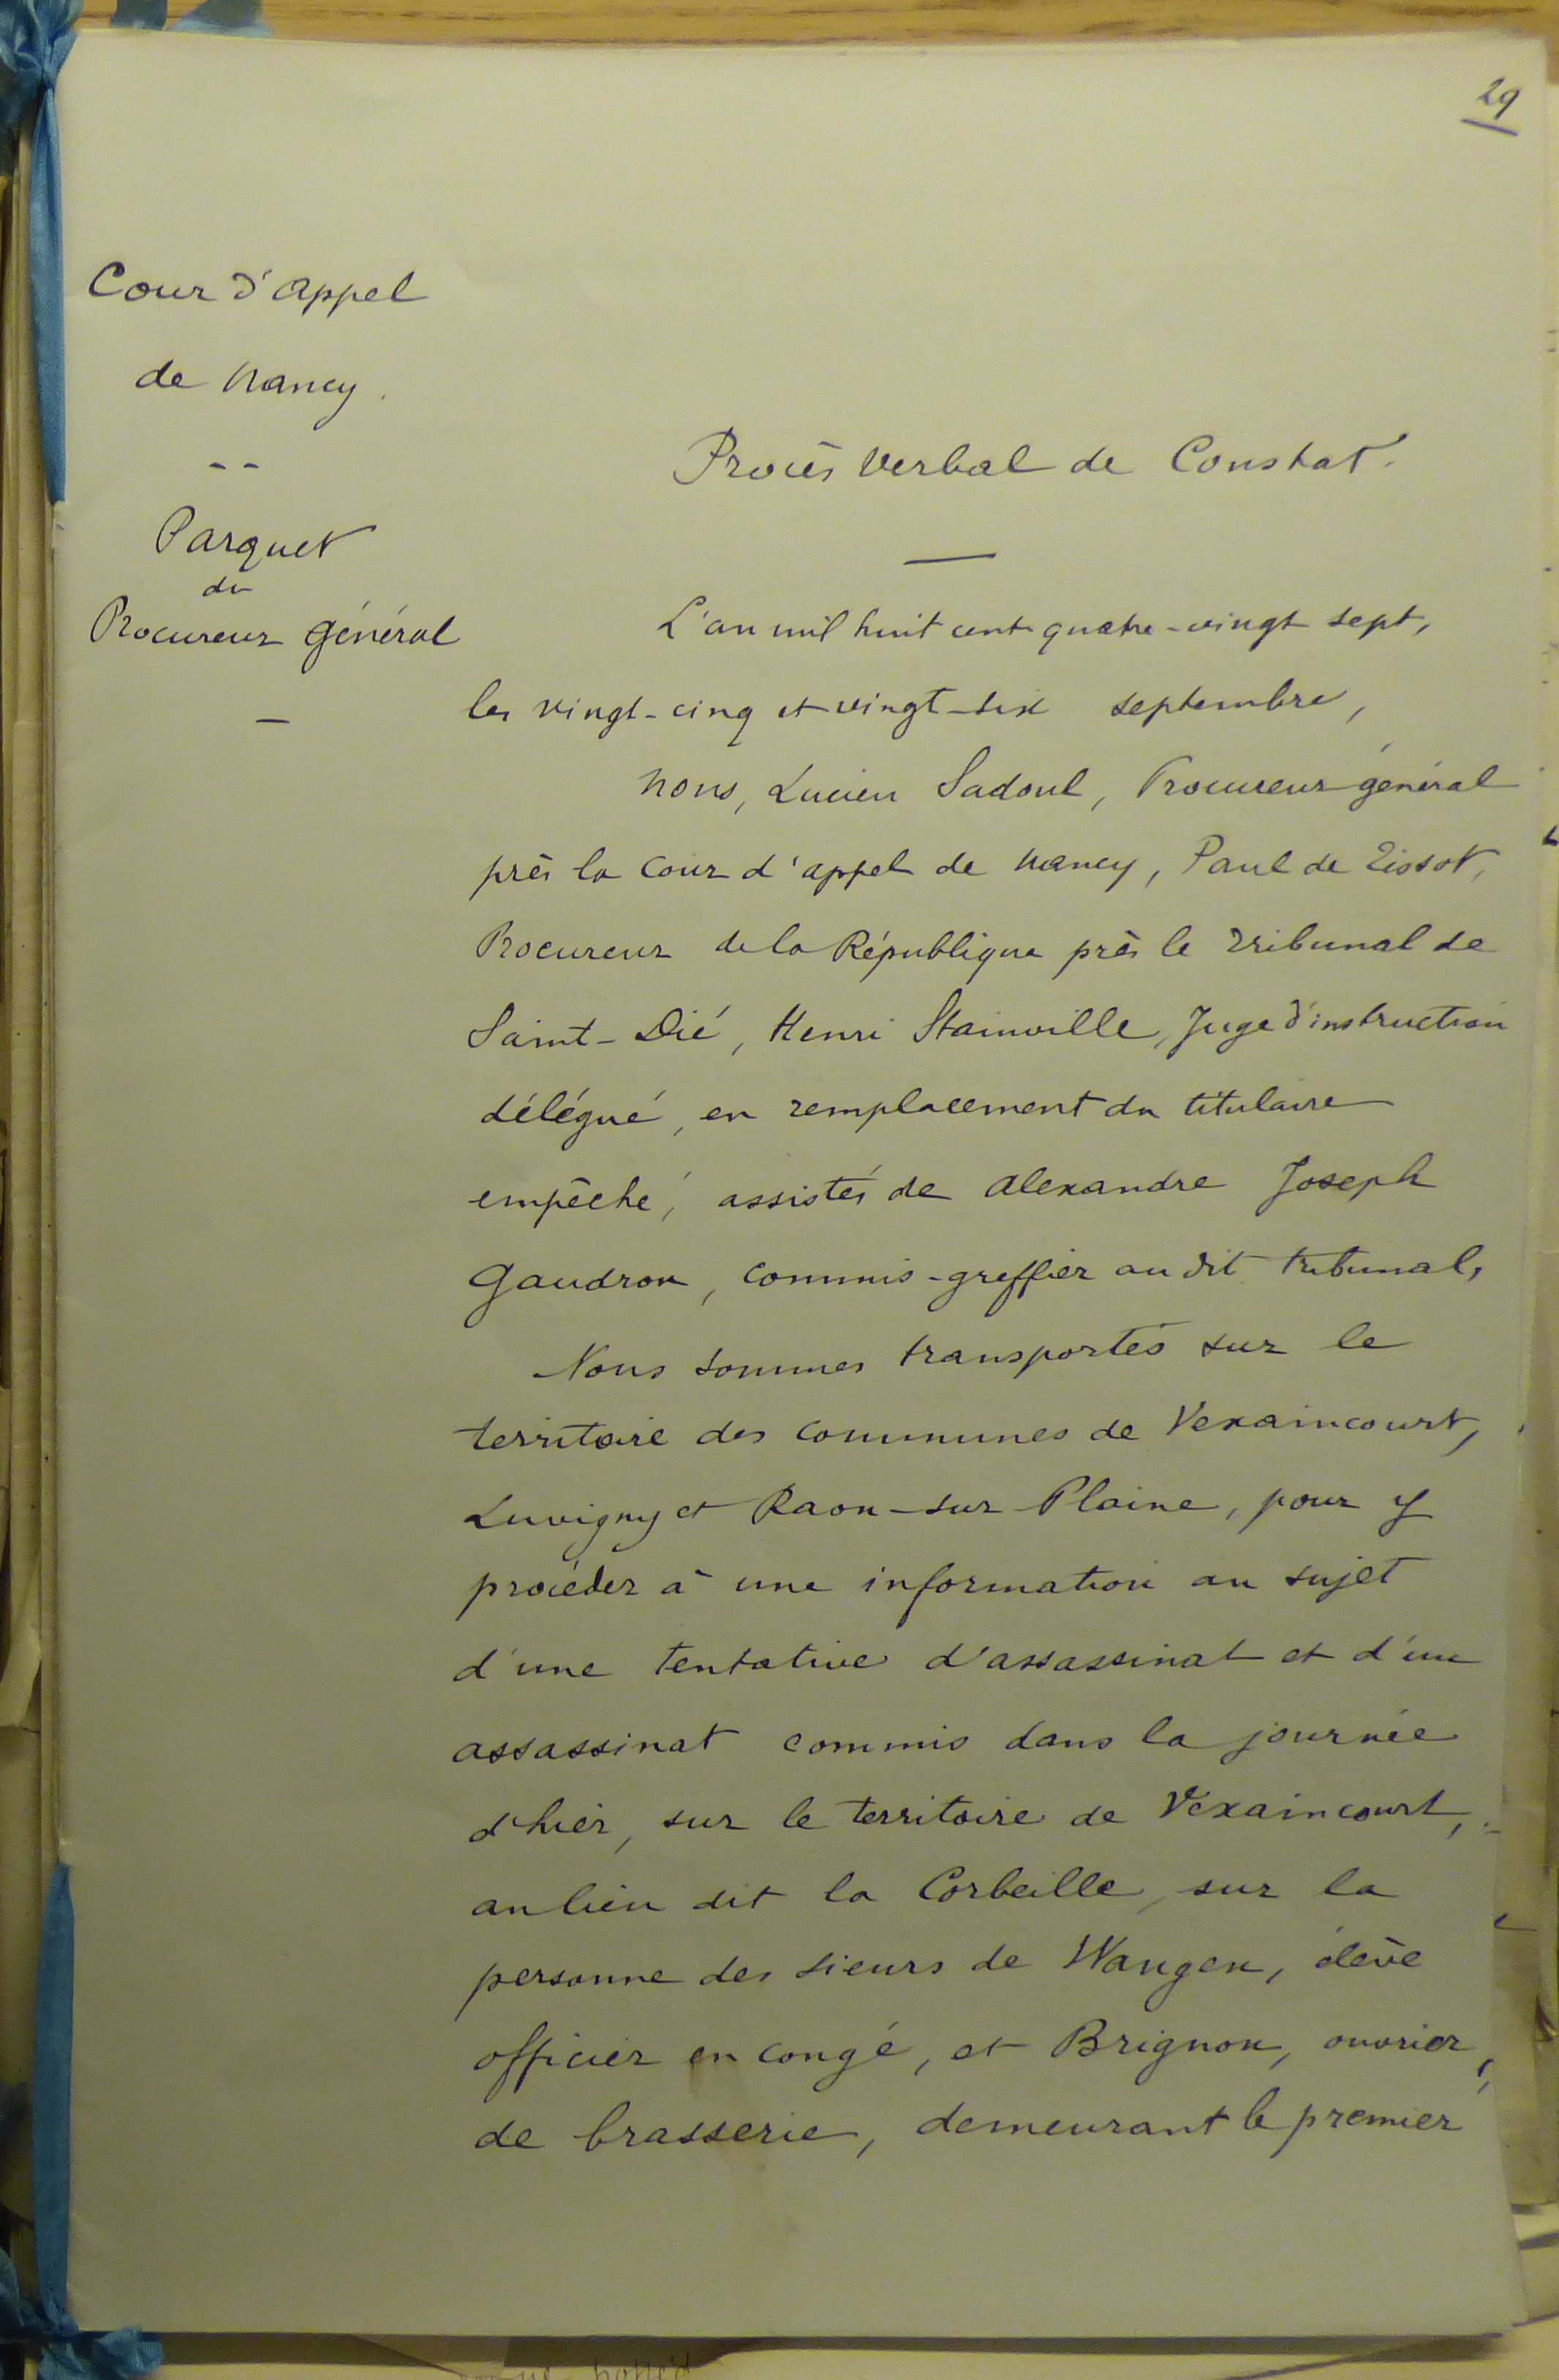 29
Cour d'appel
de Nancy.
Parquet
du
Procureur général
Procès verbal de Constat.
L'an mil huit cent quatre-vingt sept,
les vingt-cinq et vingt-six septembre,
Nous, Lucien Sadoul, Procureur général
près la Cour d'appel de Nancy, Paul de Tissot,
Procureur de la République près le Tribunal de
Saint-Dié, Henri Stainville, Juge d'instruction
délégué, en remplacement du titulaire
empêché, assistés de Alexandre Joseph
Gaudron, commis-greffier au dit tribunal,
Nous sommes transportés sur le
territoire des communes de Vexaincourt,
Luvigny et Raon-sur-Plaine, pour y
procéder à une information au sujet
d'une tentative d'assassinat et d'un
assassinat commis dans la journée
d'hier, sur le territoire de Vexaincourt,
au lieu dit la Corbeille, sur la
personne des sieurs de Wangen, élève
officier en congé, et Brignon, ouvrier,
de brasserie, demeurant le premier